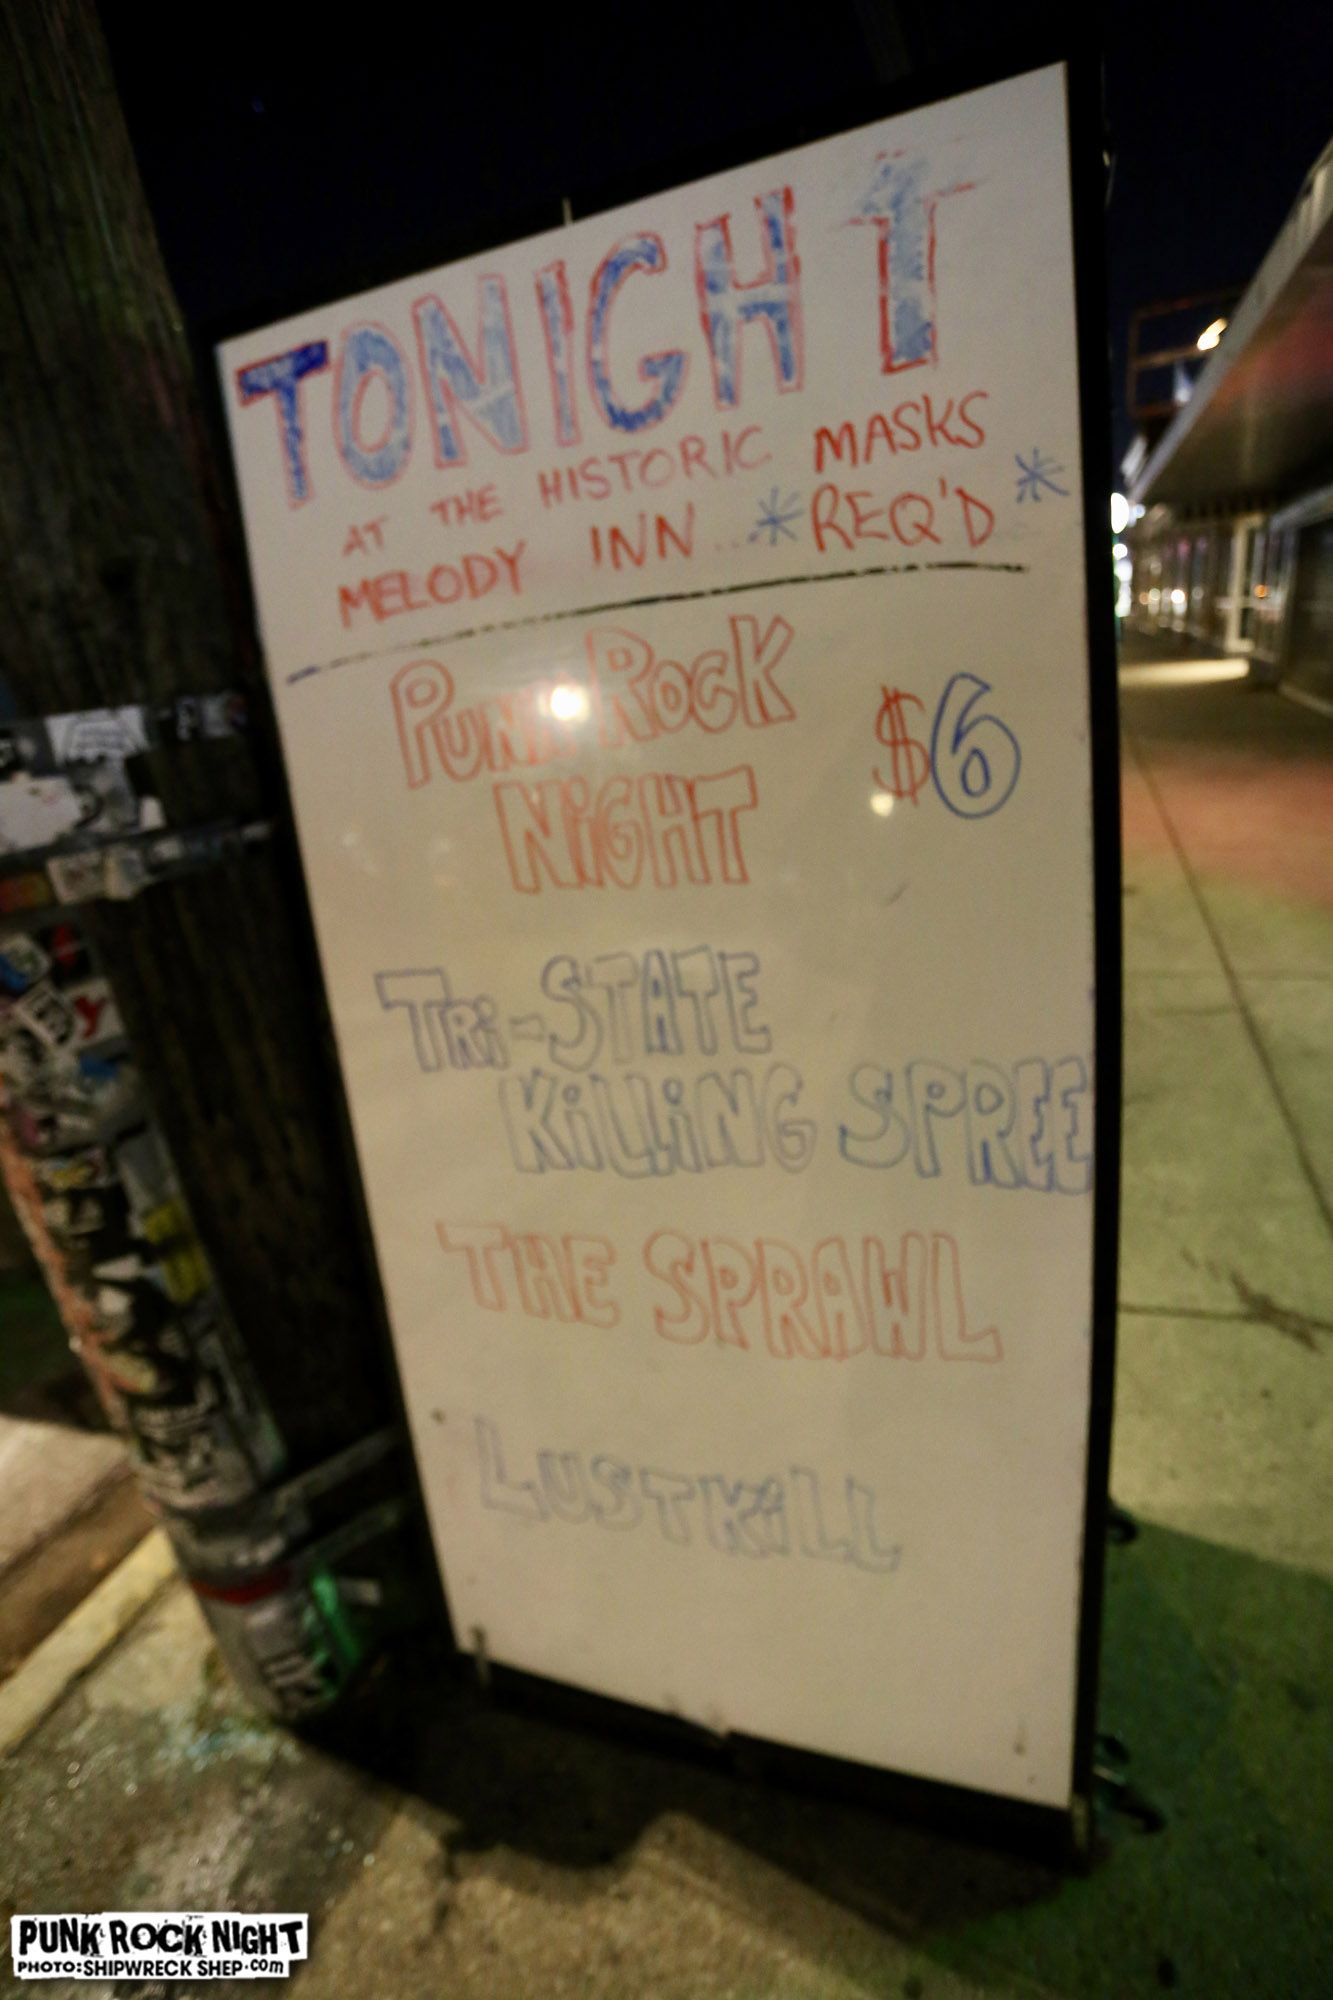 TONIGHT
AT THE HISTORIC MASKS
MELODY INN... *REQ'D*
PUNK ROCK
NiGHT
$6
TRi-STATE
KiLLiNG SPREE
THE SPRAWL
LUSTKiLL
PUNK ROCK NIGHT
PHOTO:SHIPWRECK SHEP.com